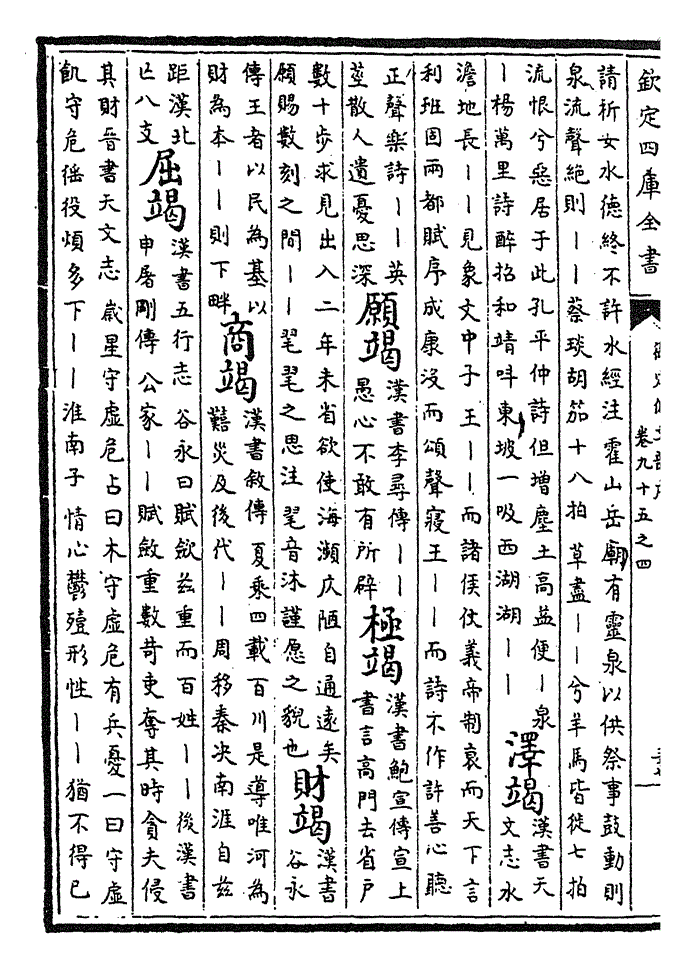 欽定四庫全書
卷九十五之四
請祈女水德終不許水經注霍山岳廟有靈泉以供祭事鼓動則
泉流聲絕則丨丨蔡琰胡笳十八拍草盡丨丨兮羊馬皆徙七拍
流恨兮惡居于此孔平仲詩但增塵土高益便丨泉
丨楊萬里詩醉招和靖呌東坡一吸西湖湖丨丨
澤竭
漢書天
文志水
澹地長丨丨見象文中子王丨丨而諸侯仗義帝制衰而天下言
利班固兩都賦序成康沒而頌聲寢王丨丨而詩不作許善心聽
正聲樂詩丨丨英
莖散人遺憂思深
願竭
漢書李尋傳丨丨
愚心不敢有所辟
極竭
漢書鮑宣傳宣上
書言高門去省戶
數十步求見出入二年未省欲使海瀕仄陋自通遠矣
願賜數刻之間丨丨毣毣之思注毣音沐謹愿之貌也
財竭
漢書
谷永
傳王者以民為基以
財為本丨丨則下畔
商竭
漢書敘傳夏乘四載百川是導唯河為
囏災及後代丨丨周移秦決南涯自茲
距漢北
亡八支
屈竭
漢書五行志谷永曰賦斂茲重而百姓丨丨後漢書
申屠剛傳公家丨丨賦斂重數苛吏奪其時貪夫侵
其財晉書天文志歲星守虛危占曰木守虛危有兵憂一曰守虛
飢守危徭役煩多下丨丨淮南子情心鬱殪形性丨丨猶不得已